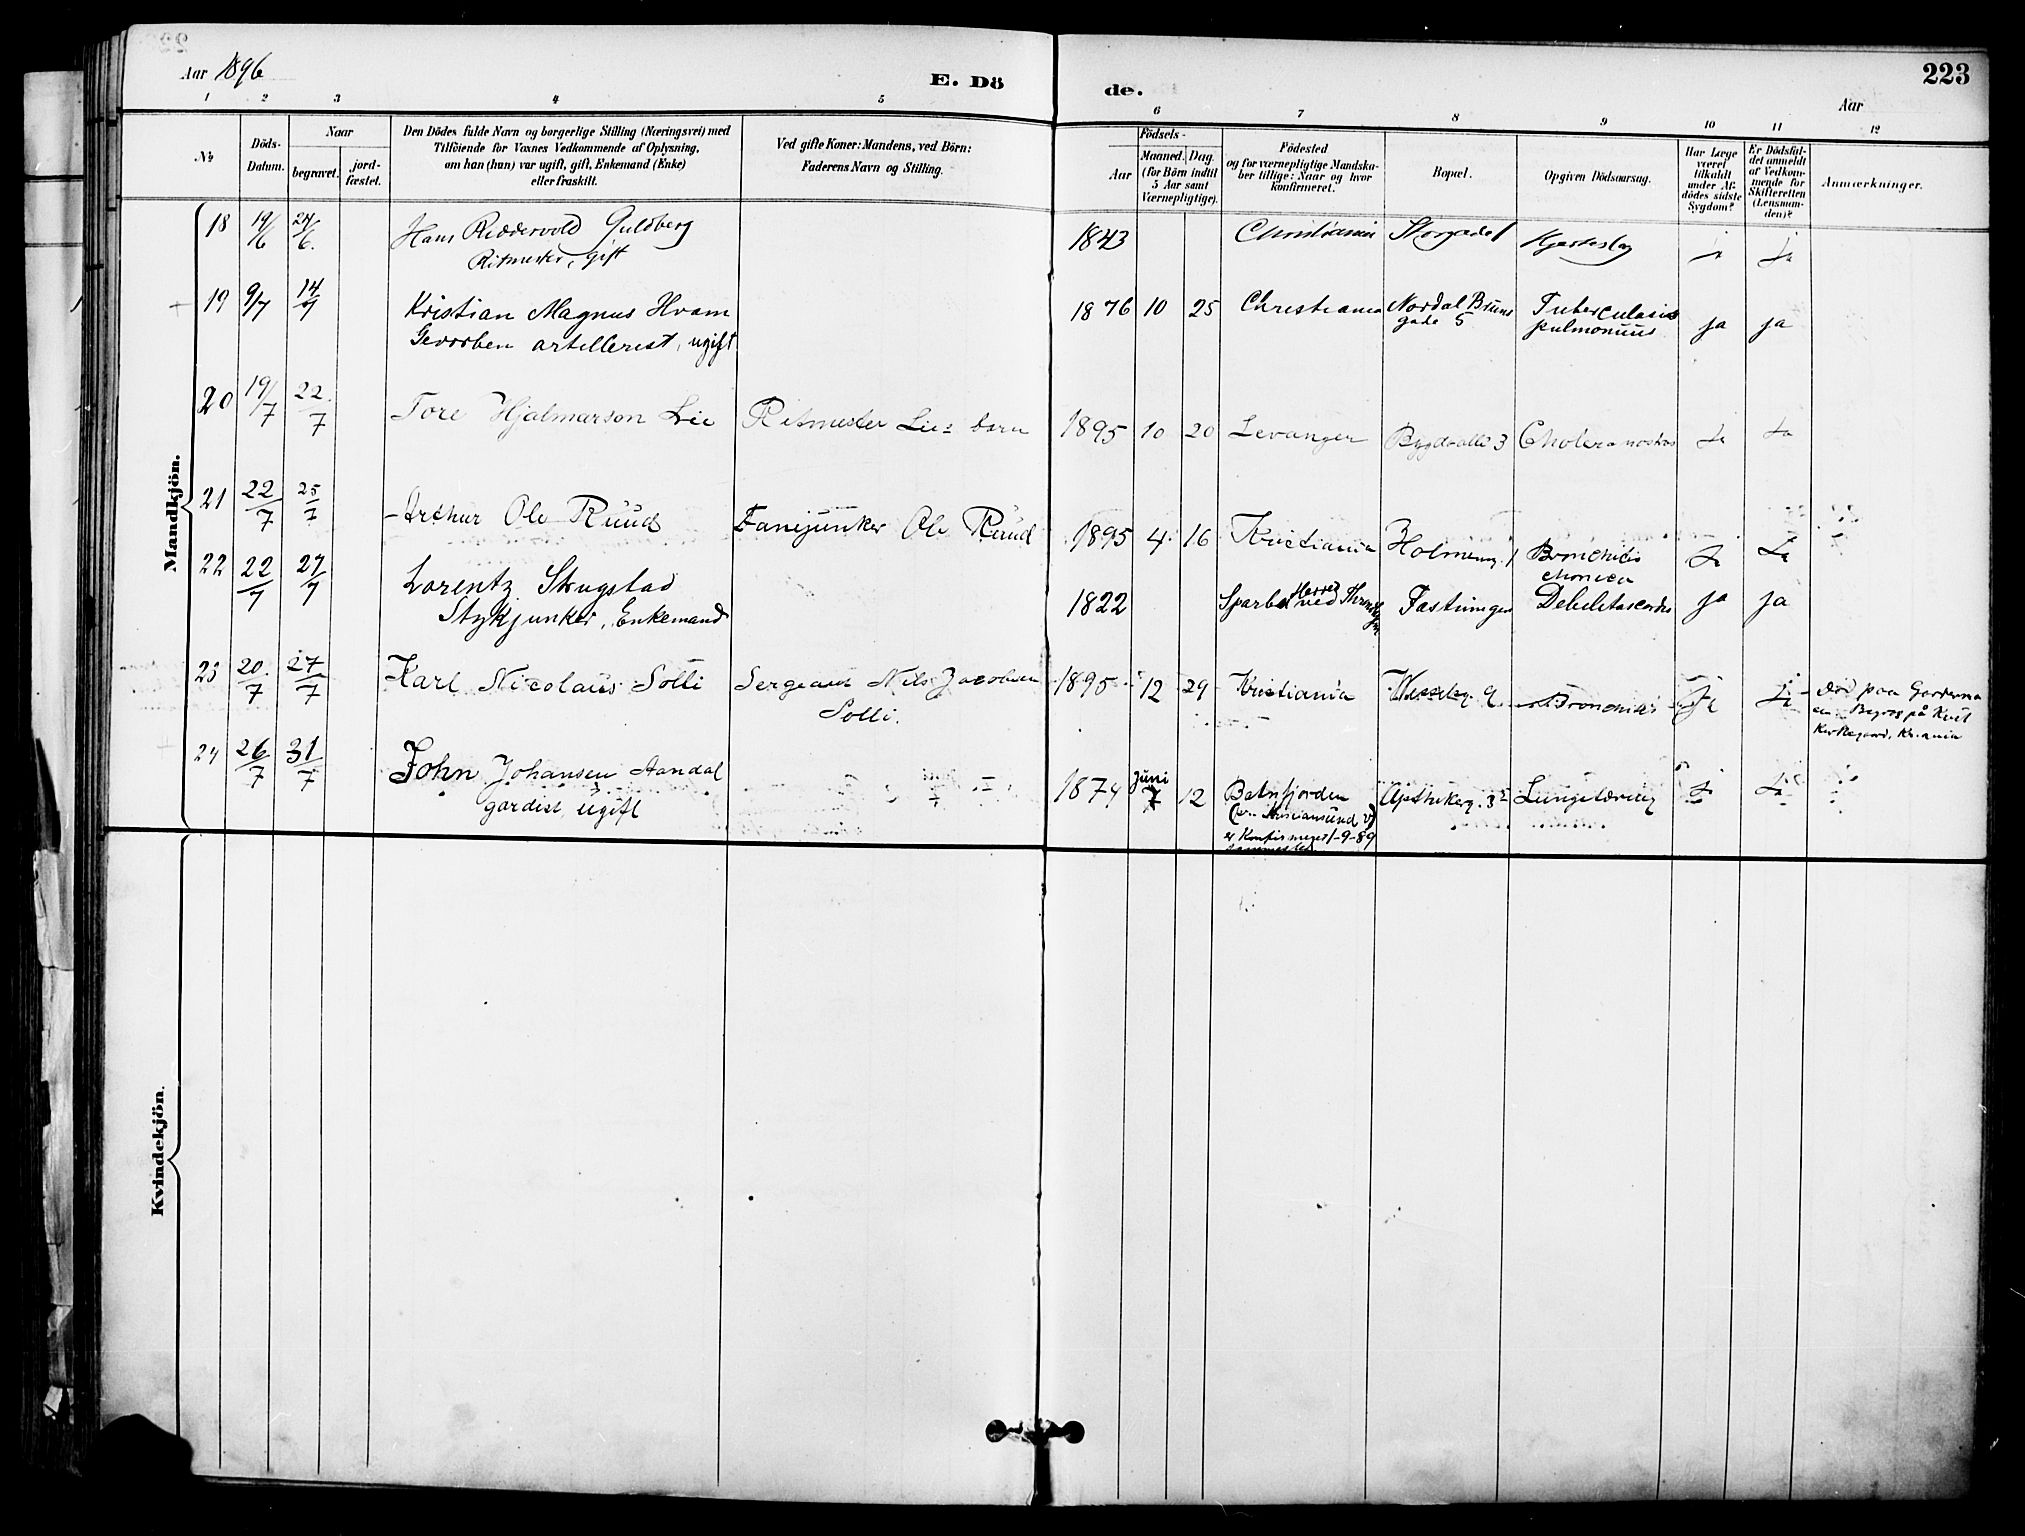 Aar 1896
E. Döde.
223
Aar
1 2 3 4 5 6 7 8 9 10 11 12
№
Döds-Datum.
Naar
begravet.
jord-fæstet.
Den Dödes fulde Navn og borgerlige Stilling (Næringsvei) med
Tilföiende for Voxnes Vedkommende af Oplysning,
om han (hun) var ugift, gift, Enkemand (Enke)
eller fraskilt.
Ved gifte Koner: Mandens, ved Börn:
Faderens Navn og Stilling.
Födsels-
Aar
Maaned. Dag.
(for Börn indtil
5 Aar samt
Værnepligtige).
Födested
og for værnepligtige Mandska-
ber tillige: Naar og hvor
konfirmeret.
Bopæl.
Opgiven Dödsaarsag.
Har Læge
været
tilkaldt
under Af-
dödes sidste
Sygdom?
Er Dödsfal-
det anmeldt
af Vedkom-
mende for
Skifteretten
(Lensman-
den)?
Anmærkninger.
Mandkjön.
18 19/6 24/6. Hans Riddervold Guldberg 1843 Christiania Storgade 1 Hjerteslag ja ja
Ritmester, gift
19 9/7 14/7 Kristian Magnus Hvam 1876 10 25 Christiania Nordal Bruns Tuberculosis ja ja
Gevorben artillerist, ugift gade 5 pulmonum
20 19/7 22/7 Tore Hjalmarson Lie Ritmester Lies barn 1895 10 20 Levanger Bygdøallé 3 Cholera nostras Ja Ja
21 22/7 25/7 Arthur Ole Ruud Fanejunker Ole Ruud 1895 4 16 Kristiania Holmensg. 1 Bronchitis Ja Ja
chronica
22 22/7 27/7 Lorentz Skrugstad 1822 Sparbo Herred ved Thronhjem Fæstningen Debilitas cordis ja ja
Stykjunker, Enkemand
23 20/7 27/7 Karl Nicolaus Solli Sergeant Nils Jacobsen 1895 12 29 Kristiania 9. Bronchitis Ja Ja Død paa Garderma
Solli. en. Begrav på Krist
Kirkegaard, Kr.ania
24 26/7 31/7 John Johansen Aandal 1874 Juni 7 12 Batnfjorden Apothekerg. 3 Lungetæring Ja Ja
gardist, ugift (v. Kristiansund N)
er Konfirmeret 1-9-89
sammested
Kvindekjön.